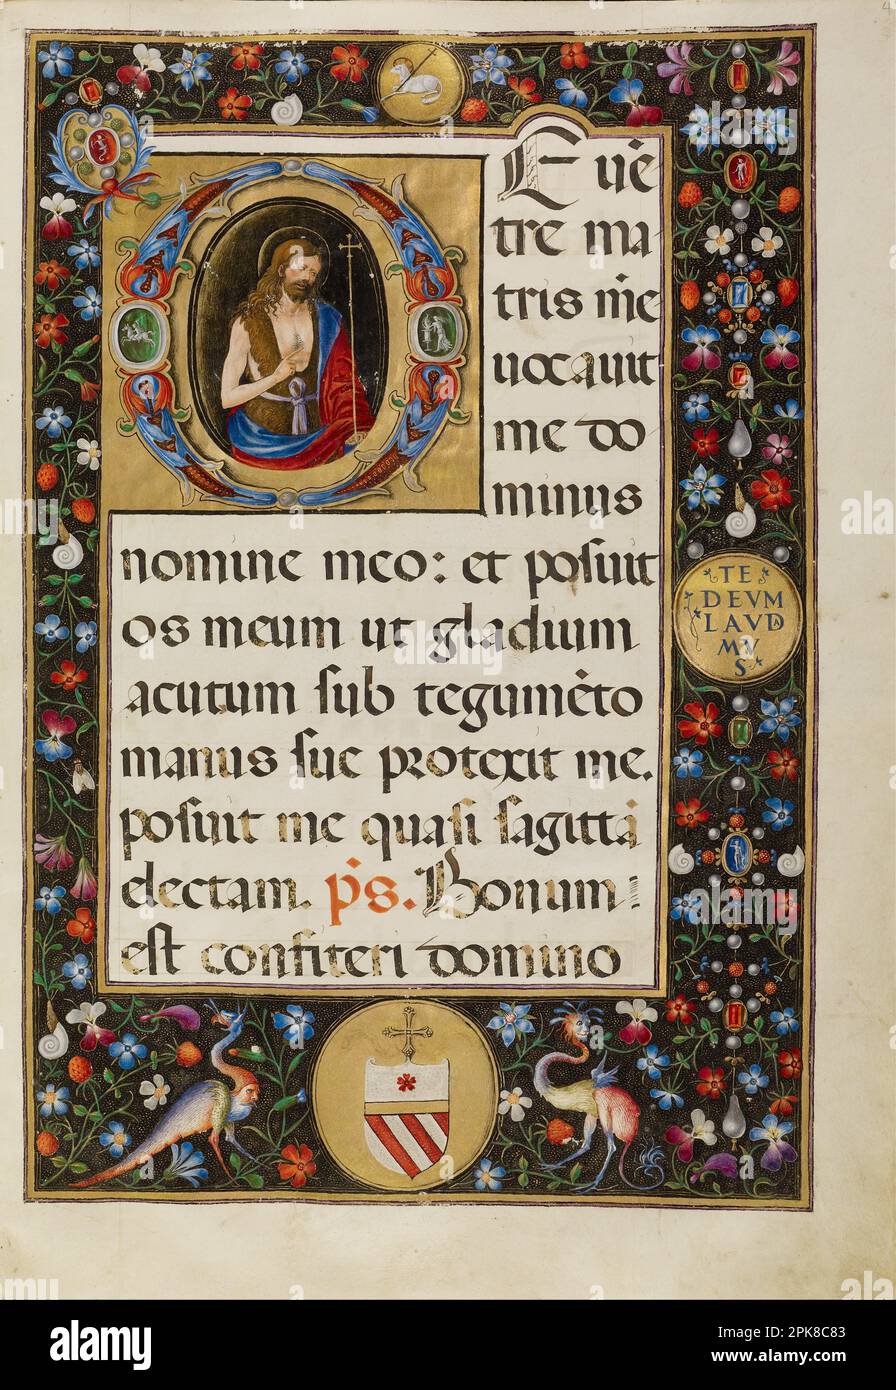 E uē
tre ma
tris m̄e
uocauit
me do
minus
nomine meo: et posuit
os meum ut gladium
acutum sub tegumēto
manus sue protexit me.
posuit me quasi sagittā
electam. p̄s. Bonum
est confiteri domino
TE
DEVM
LAVD
MV
S
alamy
Image ID: 2PK8C83
www.alamy.com